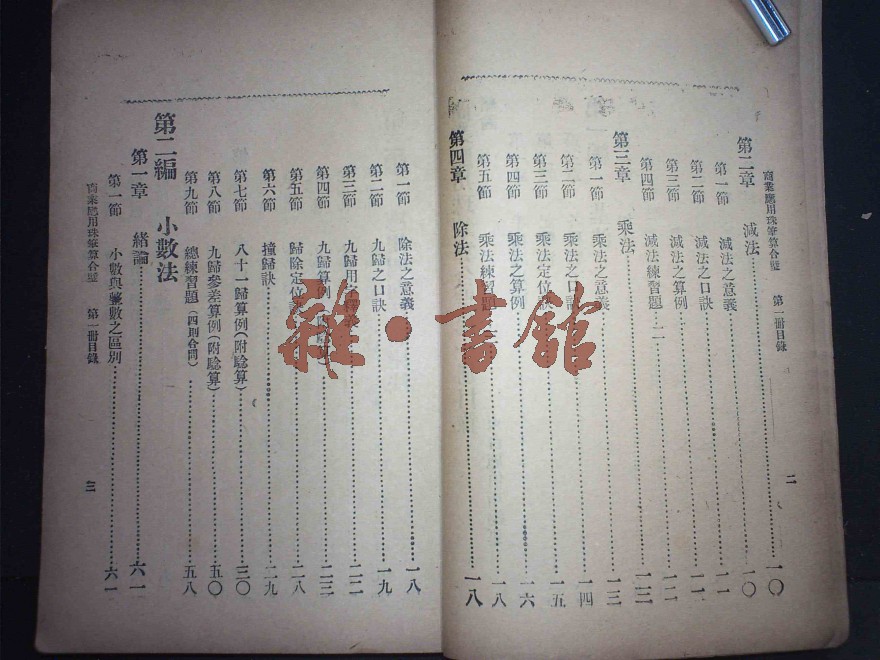 商業應用珠筆算合璧 第一册目錄 二
第二章 減法 一〇
第一節 減法之意義 一〇
第二節 減法之口訣 一一
第三節 減法之算例 一二
第四節 減法練習題 二 一三
第三章 乘法 一三
第一節 乘法之意義 一四
第二節 乘法之口訣 一五
第三節 乘法定位 一六
第四節 乘法之算例
第五節 乘法練習題 一八
第四章 除法 一八
第一節 除法之意義 一八
第二節 九歸之口訣 一九
第三節 九歸用字 二二
第四節 九歸算例 二三
第五節 歸除定位 二八
第六節 撞歸訣 二九
第七節 八十一歸算例(附驗算) 三〇
第八節 九歸參差算例(附驗算) 五〇
第九節 總練習題(四則合問) 五八
第二編 小數法
第一章 緒論 六一
第一節 小數與整數之區別 六一
商業應用珠筆算合璧 第一册目錄 三
雜·書館